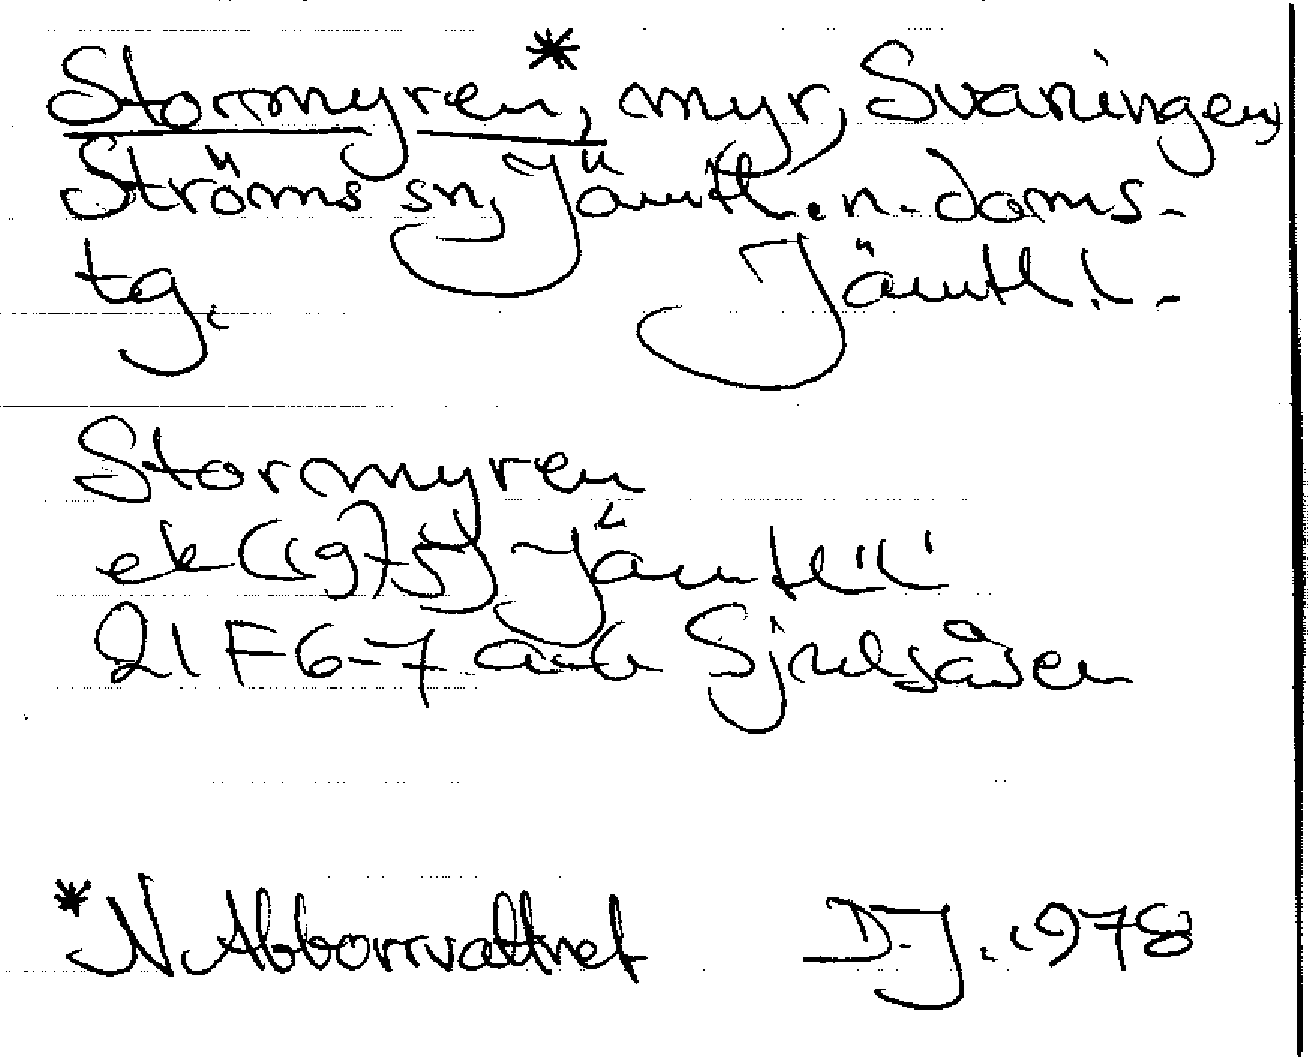 Stormyren*, myr, Svaningen,
Ströms sn, Jämtl. n. doms-
tg. Jämtl. l.
Stormyren
ek (1975) Jämtl. l.
21 F 6-7 a-b Sjoulsåsen
* N Abborrvattnet D.J. 1978